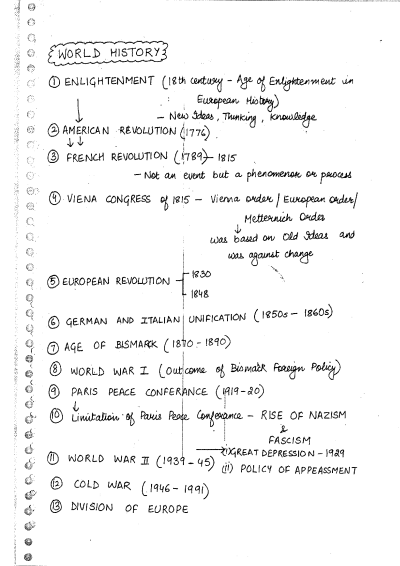 WORLD HISTORY:
① ENLIGHTENMENT (18th century - Age of Enlightenment in
European History)
- New Ideas, Thinking, Knowledge
② AMERICAN REVOLUTION (1776)
③ FRENCH REVOLUTION (1789) - 1815
- Not an event but a phenomenon or process
④ VIENA CONGRESS of 1815 - Vienna order / European Order /
Metternich Order
was based on Old Ideas and
was against change
⑤ EUROPEAN REVOLUTION - 1830
1848
⑥ GERMAN AND ITALIAN UNIFICATION (1850s - 1860s)
⑦ AGE OF BISMARK (1870 - 1890)
⑧ WORLD WAR I (Outcome of Bismark Foreign Policy)
⑨ PARIS PEACE CONFERANCE (1919-20)
⑩ Limitation of Paris Peace Conferance - RISE OF NAZISM
&
FASCISM
(i) GREAT DEPRESSION - 1929
⑪ WORLD WAR II (1939-45) (ii) POLICY OF APPEASSMENT
⑫ COLD WAR (1946-1991)
⑬ DIVISION OF EUROPE